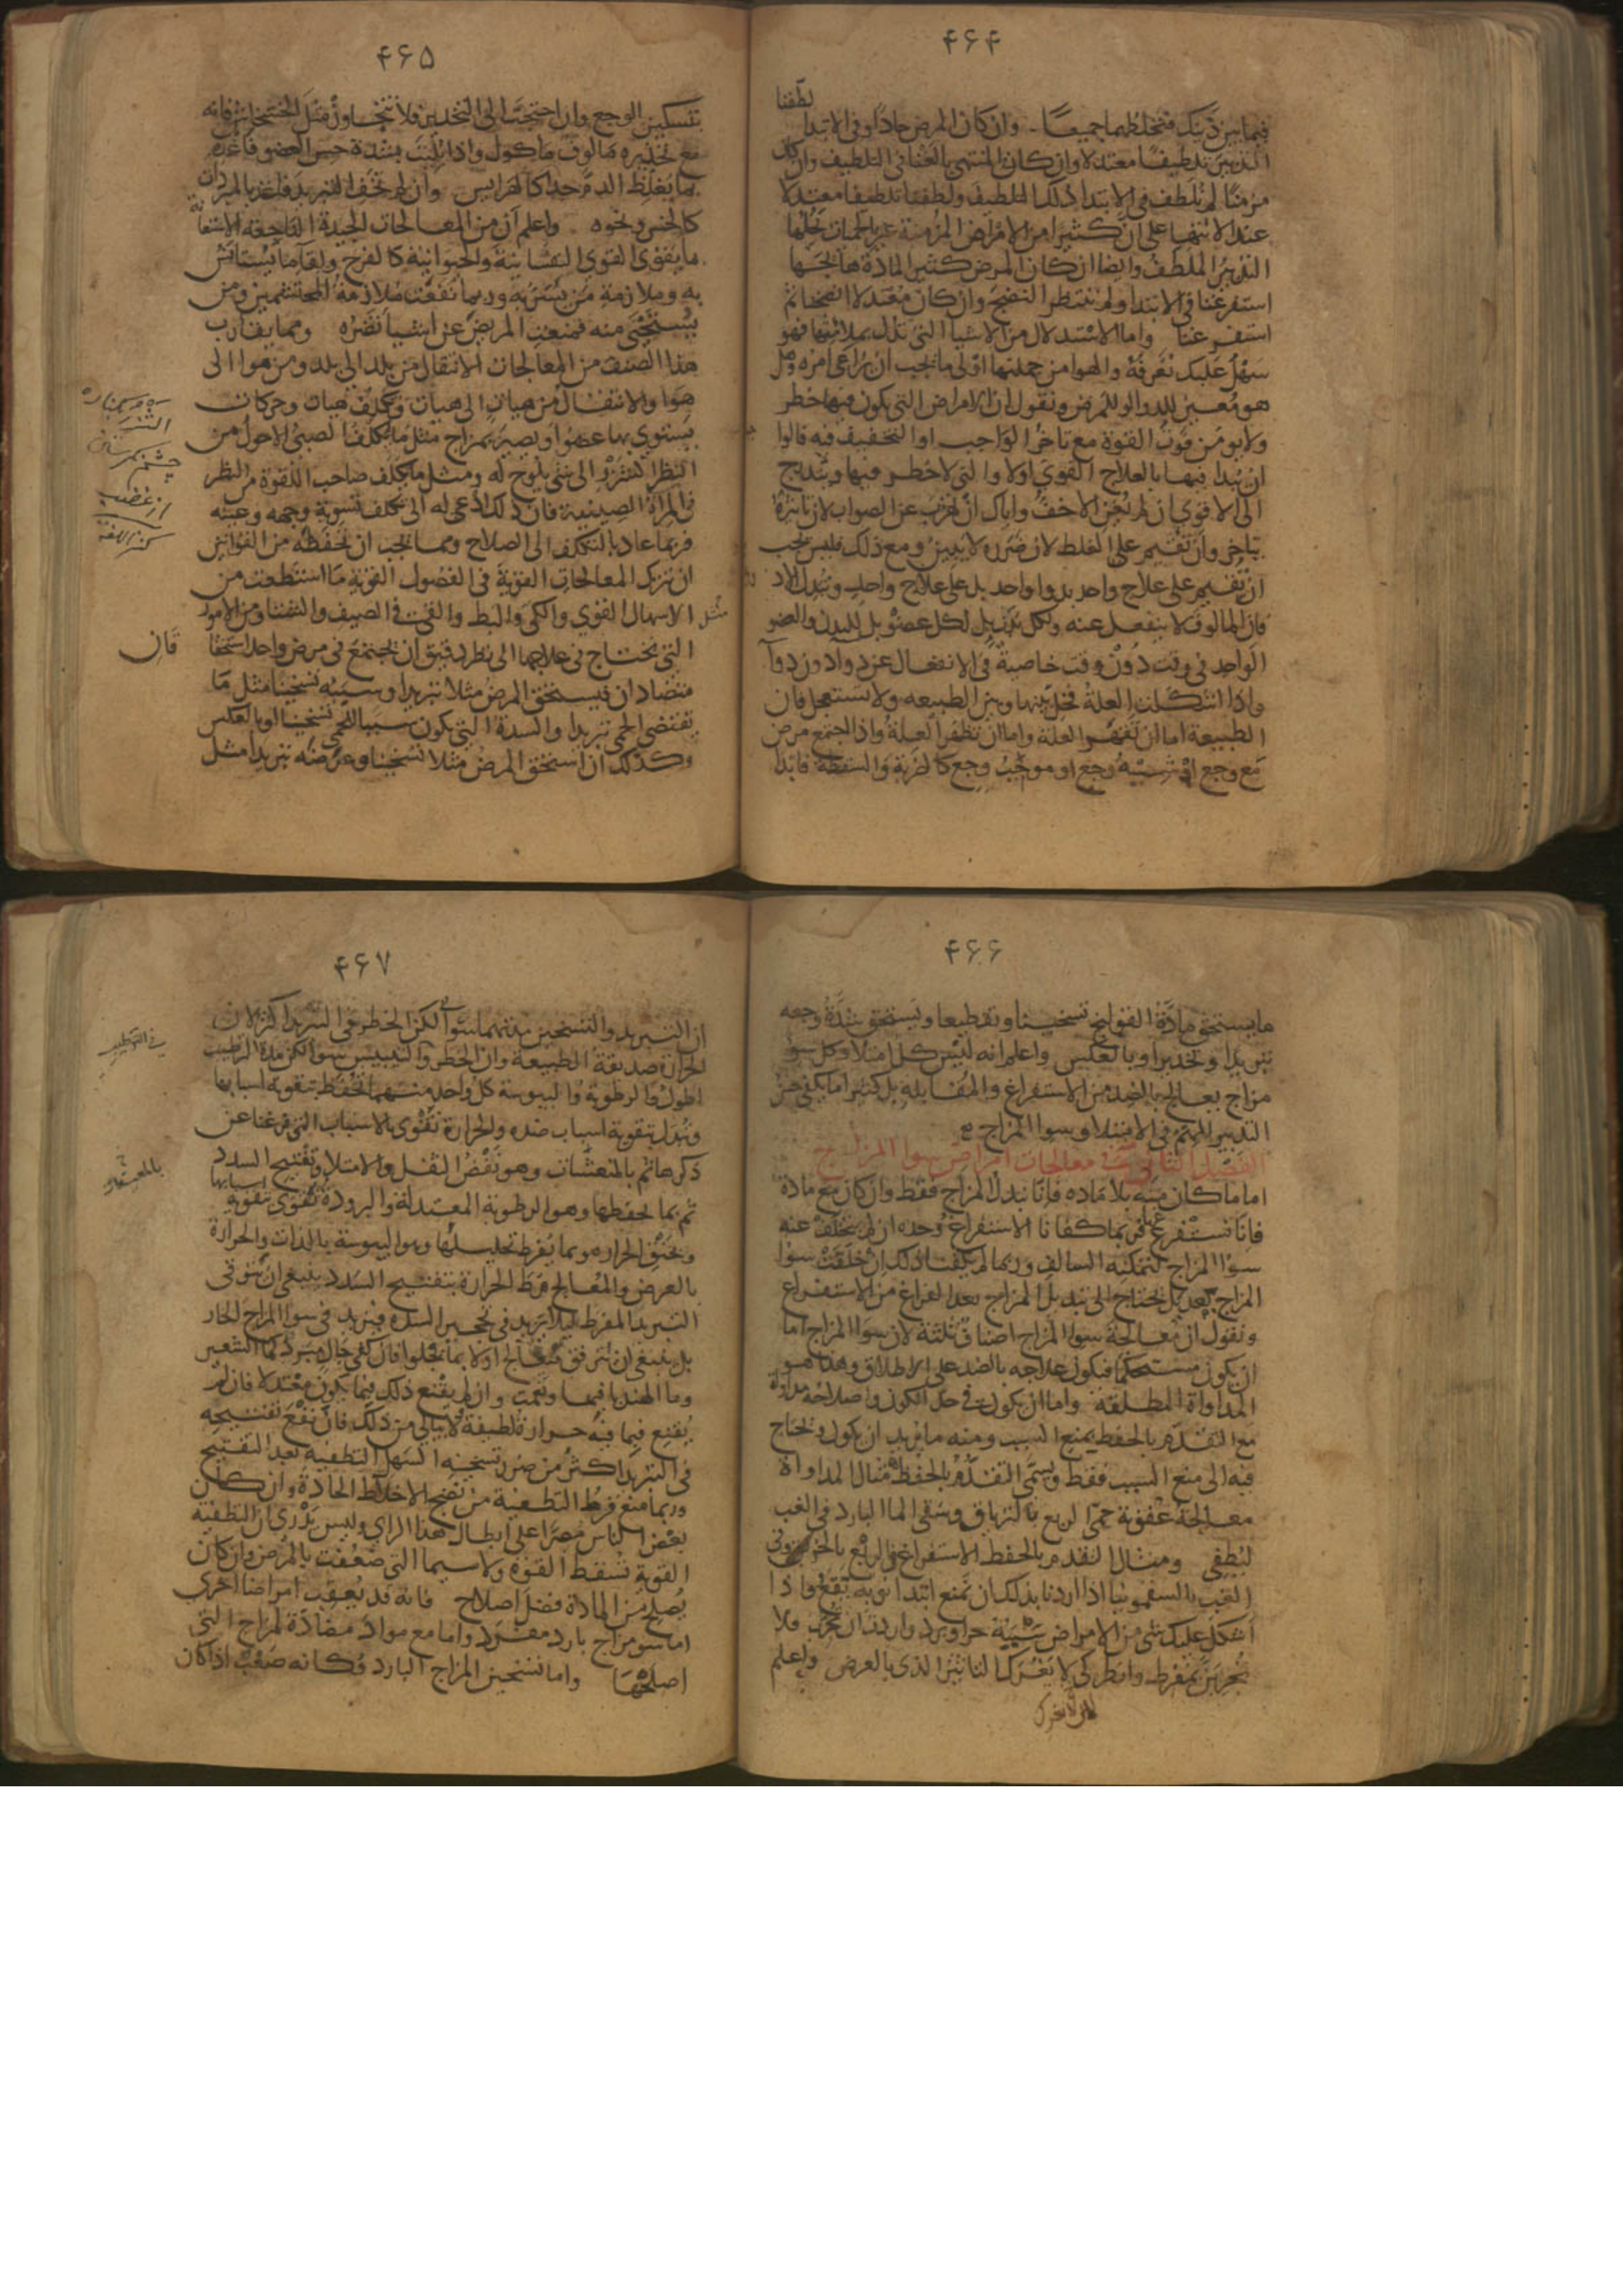 ۴۶۴
لطّفنا
فيما بين ذينك فتخلطهما جميعا وان كان المرض حادًا وفي الابتدا
التدبير تلطيفا معتدلا وان كان المنتهي بالغنا في التلطيف وان كان
مزمنًا لم نلطف في الابتدا ذلك التلطيف ولطفنا تلطيفا معتدلا
عند الانتها على ان كثيرا من الامراض المزمنة غير الحميات يحلها
التدبير الملطف وايضا ان كان المرض كثير المادة هايجها
استفرغنا في الابتدا ولم ننتظر النضج وان كان معتدلا انضجنا ثم
استفرغنا واما الاستدلال من الاشيا التي تدل بملاقاتها فهو
سهل عليك تعرفه والهوا من جملتها اولى ما يجب ان يراعى امره وهل
هو معين للدوا او للمرض ونقول ان الامراض التي يكون فيها خطر
ولا يومن فوت القوة مع تاخر الواجب او التخفيف فيه فالواجب
ان يبدا فيها بالعلاج القوي اولا والتي لا خطر فيها ويتدرج
الى الاقوي ان لم يغن الاخف واياك ان تهرب عن الصواب لان تاثيره
يتاخر وان تقيم على الغلط لان ضرره لا يتبين ومع ذلك فليس يجب
ان تقيم على علاج واحد بدوا واحد بل على علاج واحد وتبدل الادوية
فان المالوف لا ينفعل عنه ولكل بدن بل لكل عضو بل للبدن والعضو
الواحد في وقت دون وقت خاصية في الانفعال عن دوا دون دوا
واذا اشكلت العلة فخل بينها وبين الطبيعه ولا تستعجل فان
الطبيعة اما ان تقهر العلة واما ان تظهر العلة واذا اجتمع مرض
مع وجع او شبيه وجع او موجب وجع كالضربة والسقطة فابدا
۴۶۵
بتسكين الوجع وان احتجت الى التخدير فلا تتجاوز مثل الخشخاش فانه
مع تخديره مالوف ماكول واذا بليت بشدة حس العضو فاغذه
بما يغلظ الدم جدا كالهرايس وان لم تخف التبريد فاغذ بالمبردات
كالخس ونحوه واعلم ان من المعالجات الجيدة الناجعة الاستعانة
بما يقوي القوى النفسانية والحيوانية كالفرح ولقآ ما يستانس
به وملازمة من يسر به وربما نفعت ملازمة المحتشمين ومن
يستحيى منه فمنعت المريض عن اشيا تضره ومما يقارب
هذا الصنف من المعالجات الانتقال من بلد الى بلد ومن هوا الى
هوا والانتقال من هيات الى هيات وتكلف هيات وحركات
يستوي بها عضوا ويصير بمزاج مثل ما يكلف الصبي الاحول من
النظر الشزر الى شي يلوح له ومثل ما يكلف صاحب اللقوة من النظر
في المرآة الصينية فان ذلك ادعى له الى تكلف تسوية وجهه وعينه
فربما عاد بالتكلف الى الصلاح ومما يجب ان تحفظه من القوانين
ان تترك المعالجات القوية في الفصول القوية ما استطعت من
مثل الاسهال القوي والكي والبط والقي في الصيف والشتا ومن الامور
التي يحتاج في علاجها الى نظر دقيق ان يجتمع في مرض واحد استحقا
قان
متضادان فيستحق المرض مثلا تبريدا وسببه تسخينا مثل ما
يقتضي الحمى تبريدا والسدة التي يكون سببا للحمى تسخينا او بالعكس
وكذلك ان استحق المرض مثلا تسخينا وعرضه تبريدا مثل
۴۶۶
ما يستحق مادة القولنج تسخينا وتقطيعا ويستحق شدة وجعه
تبريدا وتخديرا وبالعكس واعلم انه ليس كل امتلا وكل سو
مزاج يعالج بالضد من الاستفراغ والمقابله بل كثيرا ما يكفي حسن
التدبير المهم في الامتلا وسوا المزاج
الفصل الثاني في معالجات امراض سوا المزاج
اما ما كان منه بلا ماده فانّا نبدل المزاج فقط وان كان مع مادة
فانا نستفرغ فربما كفانا الاستفراغ وحده ان لم يتخلف عنه
سوا المزاج لتمكنه السالف وربما لم يكفنا ذلك ان خلفت سوا
المزاج بعد بل نحتاج الى تبديل المزاج بعد الفراغ من الاستفراغ
ونقول ان معالجة سوا المزاج اصناف ثلثة لان سوا المزاج اما
ان يكون مستحكما فيكون علاجه بالضد على الاطلاق وهذا هو
المداواة المطلقة واما ان يكون في حد الكون واصلاحه مداواة
مع التقدم بالحفظ يمنع السبب ومنه ما يريد ان يكون ونحتاج
فيه الى منع السبب فقط ويسمى التقدم بالحفظ مثال المداواة
معالجة عفونة حمى الربع بالترياق وسقي الما البارد في الغب
ليطفي ومثال التقدم بالحفظ الاستفراغ في الربع بالخربق وفي
الغب بالسقمونيا اذا اردنا بذلك ان نمنع ابتدا نوبه تقع واذا
اشكل عليك شي من الامراض سببه حر او برد واردت ان تجرب فلا
تجربن بمفرط وانظر كي لا يغرك التاثير الذي بالعرض واعلم
۴۶۷
ان التبريد والتسخين مدتهما سوا لكن الخطر في التبريد اكثر لان
الحرارة صديقة الطبيعة وان الخطر والتيبيس سوا لكن مدة الترطيب
اطول والرطوبة واليبوسة كل واحد منهما تحفظ بتقوية اسبابها
وتبدل بتقوية اسباب ضده والحرارة تقوى بالاسباب التي فرغنا عن
ذكرها ثم بالمنعشات وهو نفض الثفل والامتلا وتفتيح السدد
ثم بما يحفظها وهو الرطوبة المعتدلة والبرودة تقوى بتقوية اسبابها
وبخنق الحراره وبما يفرط تحليلها وهو اليبوسة بالذات والحرارة
بالعرض والمعالج فرط الحرارة بتفتيح السدد ينبغي ان يتوقى
التبريد المفرط ليلا يزيد في تحجير السده فيزيد في سوا المزاج الحار
بل ينبغي ان يترفق فيعالج اولا بما يجلوا فان كفى جال مبرد كما الشعير
وما الهندبا فيها ونعمت وان لم يقنع ذلك فبما يكون معتدلا فان لم
يقنع فبما فيه حرارة لطيفة ولا يبالي من ذلك فان نفع تفتيحه
في التبريد اكثر من ضرر تسخينه السهل التطفيه بعد التفتيح
وربما منع فرط التطفية من نضج الاخلاط الحادة وان كان
بعض الناس مصرا على ابطال هذا الراي وليس يدري ان التطفية
القوية تسقط القوة ولا سيما التي ضعفت بالمرض وان كان
يصلح من المادة فضل اصلاح فانه قد يعقب امراضا اخرى
اما سو مزاج بارد مفرد واما مع مواد مضادة لمزاج التي
اصلحها واما تسخين المزاج البارد فكانه صعب اذا كان